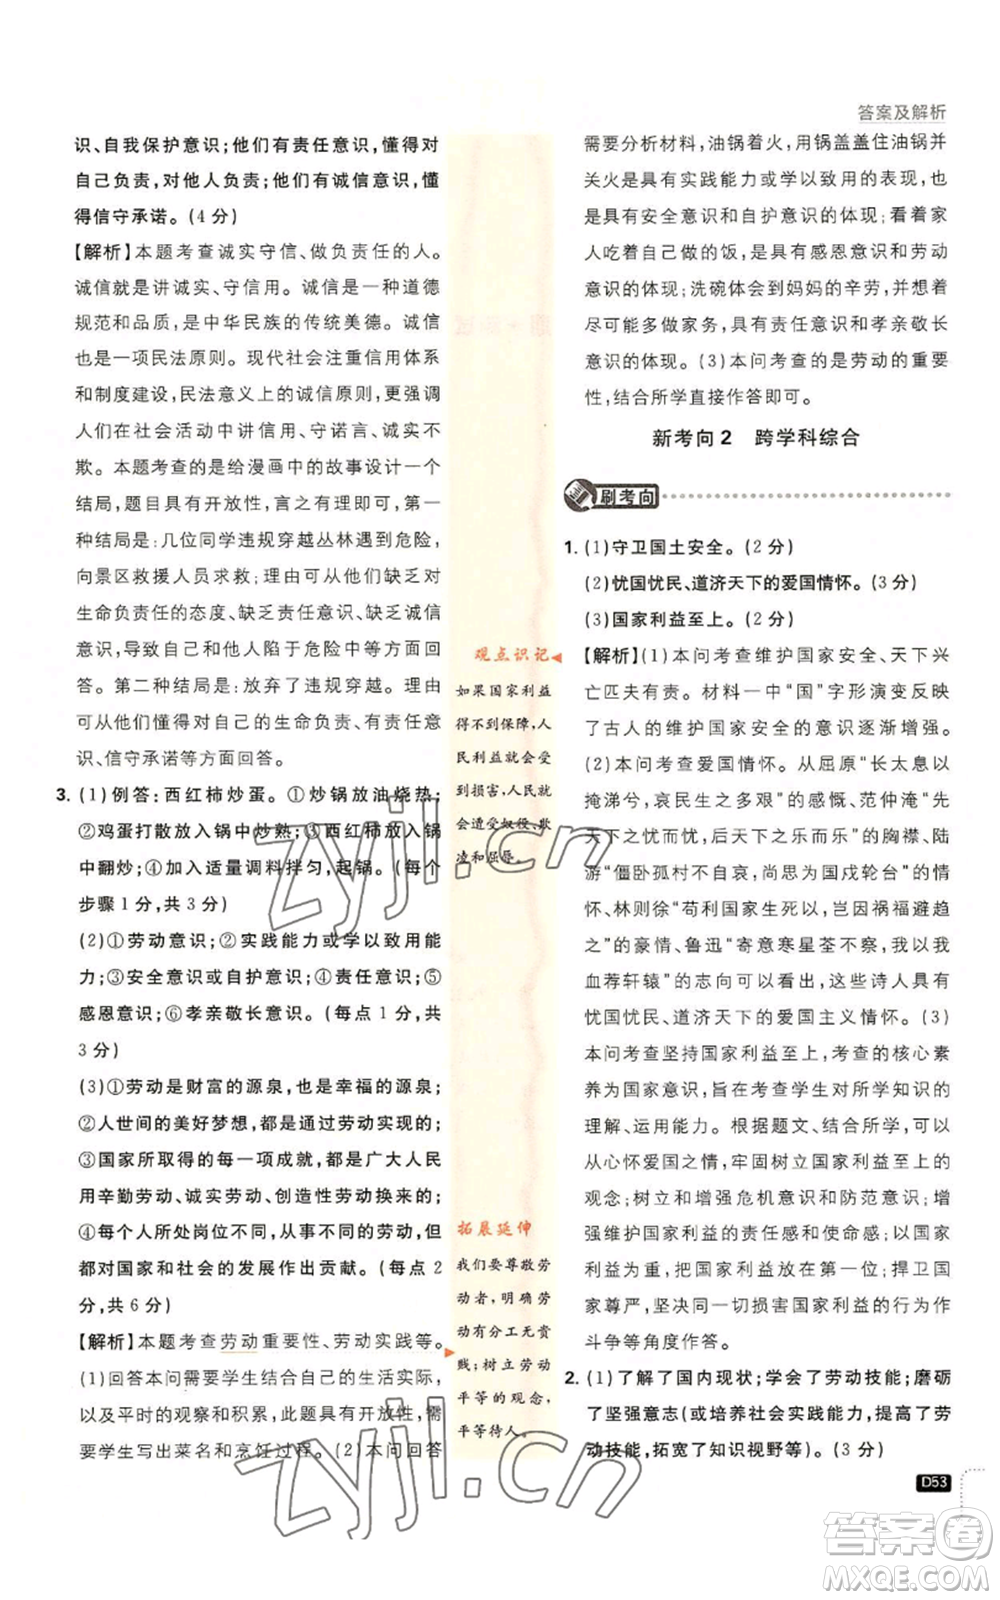 答案及解析
识、自我保护意识;他们有责任意识,懂得对
自己负责,对他人负责;他们有诚信意识,懂
得信守承诺。(4分)
【解析】本题考查诚实守信、做负责任的人。
诚信就是讲诚实、守信用。诚信是一种道德
规范和品质,是中华民族的传统美德。诚信
也是一项民法原则。现代社会注重信用体系
和制度建设,民法意义上的诚信原则,要求人
们在社会活动中讲信用、守诺言、诚实不
欺。本题考查的是给漫画中的故事设计一个
结局,题目具有开放性,言之有理即可。第
一种结局是:几位同学违规穿越丛林遇到危险,
向景区救援人员求救;理由是他们缺乏对
生命负责任的态度、缺乏责任意识、缺乏诚信
意识,导致自己和他人陷于危险中或者给他人
添麻烦。第二种结局是:放弃了违规穿越。理由
可从他们对自己的生命负责、有责任意
识、信守承诺等方面回答。
3. (1)例答:西红柿炒蛋。①炒锅放油烧热;
②鸡蛋打散放入锅中炒熟;③西红柿放入锅
中翻炒;④加入适量调料拌匀,起锅。(每个
步骤1分,共3分)
(2)①劳动意识;②实践能力或学以致用能
力;③安全意识或自护意识;④责任意识;⑤
感恩意识;⑥孝亲敬长意识。(每点1分,共
3分)
(3)①劳动是财富的源泉,也是幸福的源泉;
②人世间的美好梦想,都要通过劳动来实现;
③国家所取得的每一项成就,都是广大人民
用辛勤劳动、诚实劳动、创造性劳动换来的;
④每个人所处岗位不同,从事的劳动不同,但
都对国家和社会的发展作出贡献。(每点2
分,共6分)
【解析】本题考查劳动重要性、劳动实践等。
(1)回答本问需要学生结合自己的生活实际,
以及平时的观察和积累,此题具有开放性,需
要学生写出菜名和烹饪过程。(2)本问回答
观点识记
如果国家利益
得不到保障,人
民利益就会受
到损害,人民就
会遭受奴役、欺
凌和屈辱。
拓展延伸
我们要尊敬劳
动者,明确劳
动有分工无贵
贱;树立劳动
平等的观念,
平等待人。
需要分析材料,油锅着火,用锅盖盖住油锅并
关火是具有实践能力或学以致用的表现,也
是具有安全意识和自护意识的体现;看着家
人吃着自己做的饭,是具有感恩意识和劳动
意识的体现;洗碗体会到妈妈的辛劳,并想着
尽可能多做家务,具有责任意识和孝亲敬长
意识的体现。(3)本问考查的是劳动的重要
性,结合所学直接作答即可。
新考向2 跨学科综合
刷考向
1. (1)守卫国土安全。(2分)
(2)忧国忧民、道济天下的爱国情怀。(3分)
(3)国家利益至上。(2分)
【解析】(1)本问考查维护国家安全、天下兴
亡匹夫有责。材料一中“国”字形演变反映
了古人的维护国家安全的意识逐渐增强。
(2)本问考查爱国情怀。从屈原“长太息以
掩涕兮,哀民生之多艰”的感慨、范仲淹“先
天下之忧而忧,后天下之乐而乐”的胸襟、陆
游“僵卧孤村不自哀,尚思为国戍轮台”的情
怀、林则徐“苟利国家生死以,岂因祸福避趋
之”的豪情、鲁迅“寄意寒星荃不察,我以我
血荐轩辕”的志向可以看出,这些诗人具有
忧国忧民、道济天下的爱国主义情怀。(3)
本问考查坚持国家利益至上,考查的核心素
养为国家意识,旨在考查学生对所学知识的
理解、运用能力。根据题文、结合所学,可以
从心怀爱国之情,牢固树立国家利益至上的
观念;树立和增强危机意识和防范意识;增
强维护国家利益的责任感和使命感;以国家
利益为重,把国家利益放在第一位;捍卫国
家尊严,坚决同一切损害国家利益的行为作
斗争等角度作答。
2. (1)了解了国内现状;学会了劳动技能;磨砺
了坚强意志(或培养社会实践能力,提高了劳
动技能,拓宽了知识视野等)。(3分)
D53
zyjl.cn
zyjl.cn
答案圈
MXQE.COM